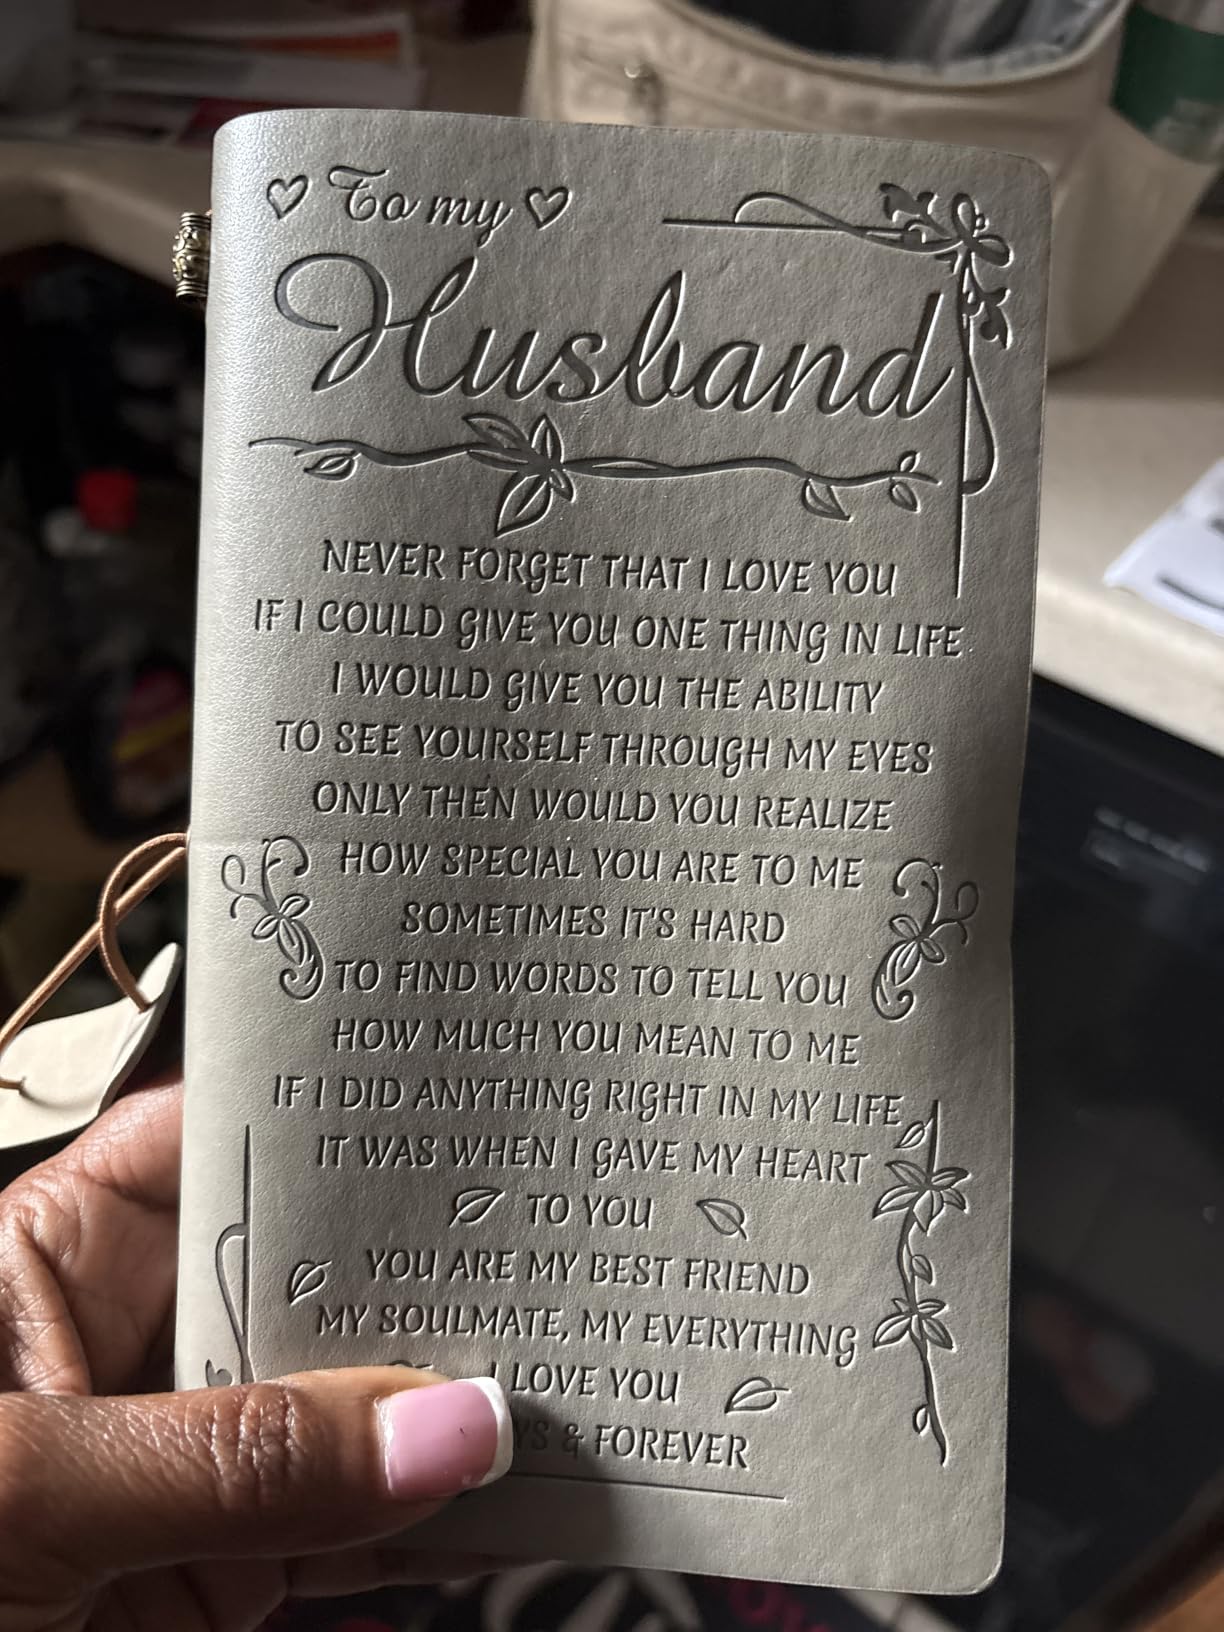 To my
Husband
NEVER FORGET THAT I LOVE YOU
IF I COULD GIVE YOU ONE THING IN LIFE
I WOULD GIVE YOU THE ABILITY
TO SEE YOURSELF THROUGH MY EYES
ONLY THEN WOULD YOU REALIZE
HOW SPECIAL YOU ARE TO ME
SOMETIMES IT'S HARD
TO FIND WORDS TO TELL YOU
HOW MUCH YOU MEAN TO ME
IF I DID ANYTHING RIGHT IN MY LIFE
IT WAS WHEN I GAVE MY HEART
TO YOU
YOU ARE MY BEST FRIEND
MY SOULMATE, MY EVERYTHING
I LOVE YOU
& FOREVER